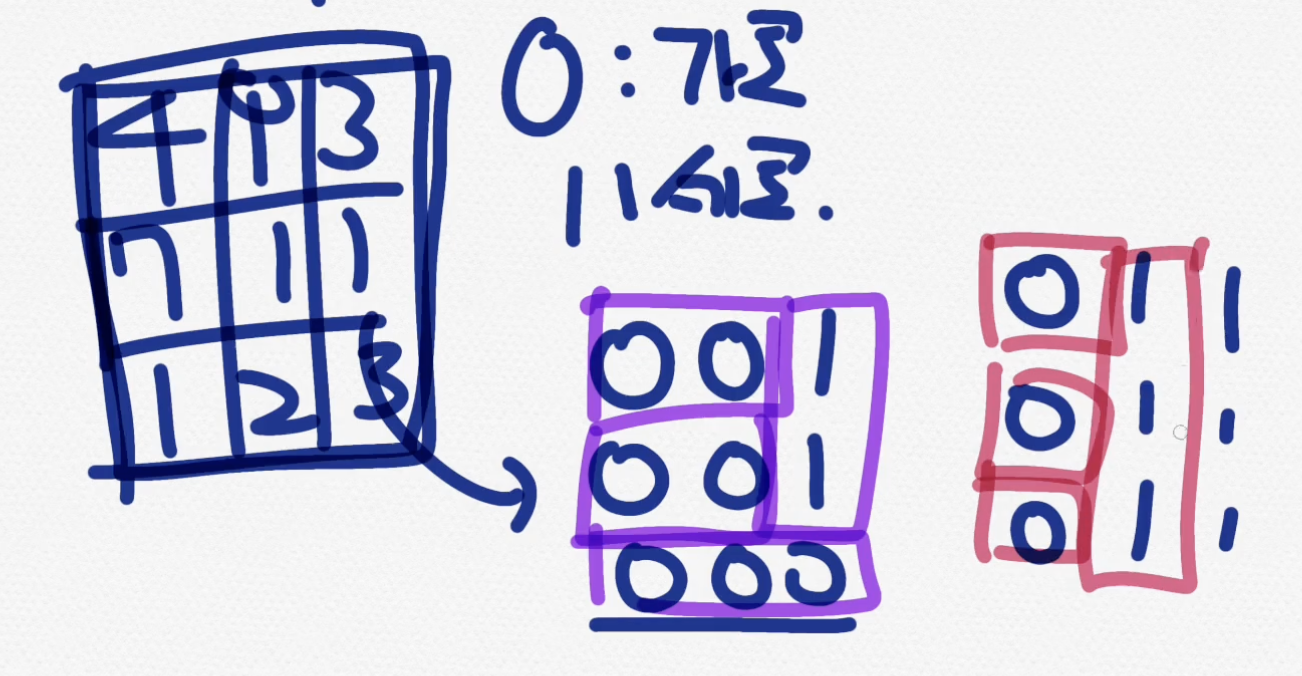 4 0 3
7 1 1
1 2 3
0 : 가로
1 세로.
0 0 1
0 0 1
0 0 0
0 1 1
0 1 1
0 1 1